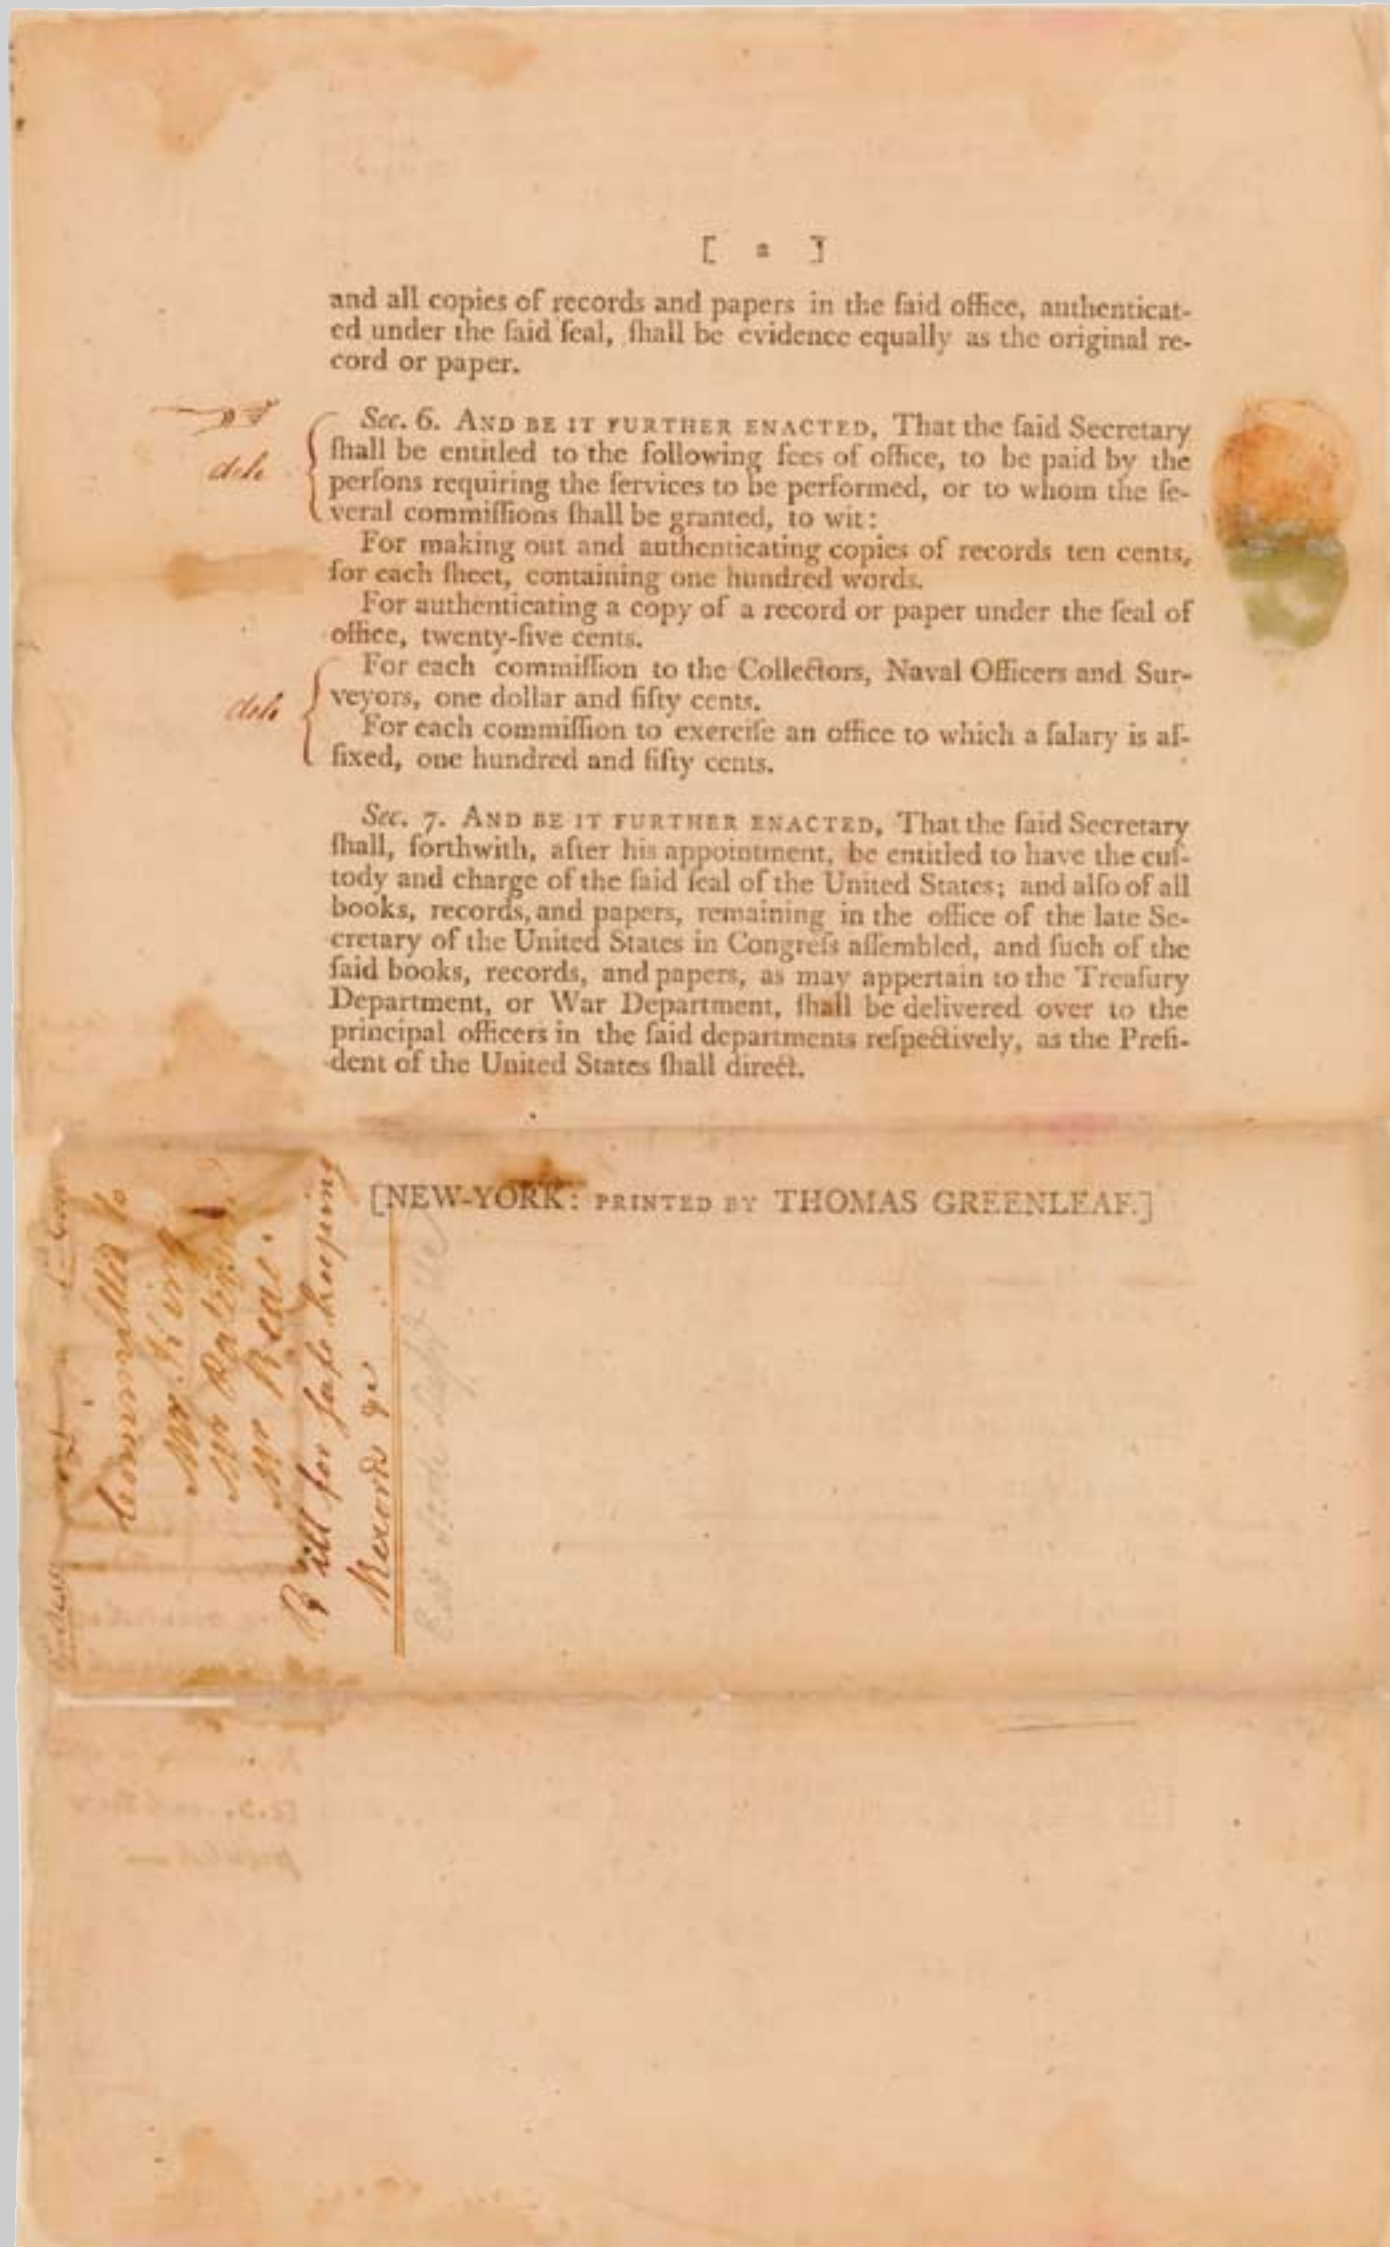 [ 2 ]
and all copies of records and papers in the ſaid office, authenticat-
ed under the ſaid ſeal, ſhall be evidence equally as the original re-
cord or paper.
Sec. 6. AND BE IT FURTHER ENACTED, That the ſaid Secretary
ſhall be entitled to the following fees of office, to be paid by the
perſons requiring the ſervices to be performed, or to whom the ſe-
veral commiſſions ſhall be granted, to wit:
For making out and authenticating copies of records ten cents,
for each ſheet, containing one hundred words.
For authenticating a copy of a record or paper under the ſeal of
office, twenty-five cents.
For each commiſſion to the Collectors, Naval Officers and Sur-
veyors, one dollar and fifty cents.
For each commiſſion to exerciſe an office to which a ſalary is af-
fixed, one hundred and fifty cents.
Sec. 7. AND BE IT FURTHER ENACTED, That the ſaid Secretary
ſhall, forthwith, after his appointment, be entitled to have the cuſ-
tody and charge of the ſaid ſeal of the United States; and alſo of all
books, records, and papers, remaining in the office of the late Se-
cretary of the United States in Congreſs aſſembled, and ſuch of the
ſaid books, records, and papers, as may appertain to the Treaſury
Department, or War Department, ſhall be delivered over to the
principal officers in the ſaid departments reſpectively, as the Preſi-
dent of the United States ſhall direct.
[NEW-YORK: PRINTED BY THOMAS GREENLEAF.]
Committed to
Mr. King
Mr
Mr Read.
Bill for ſafe keeping
Records &c